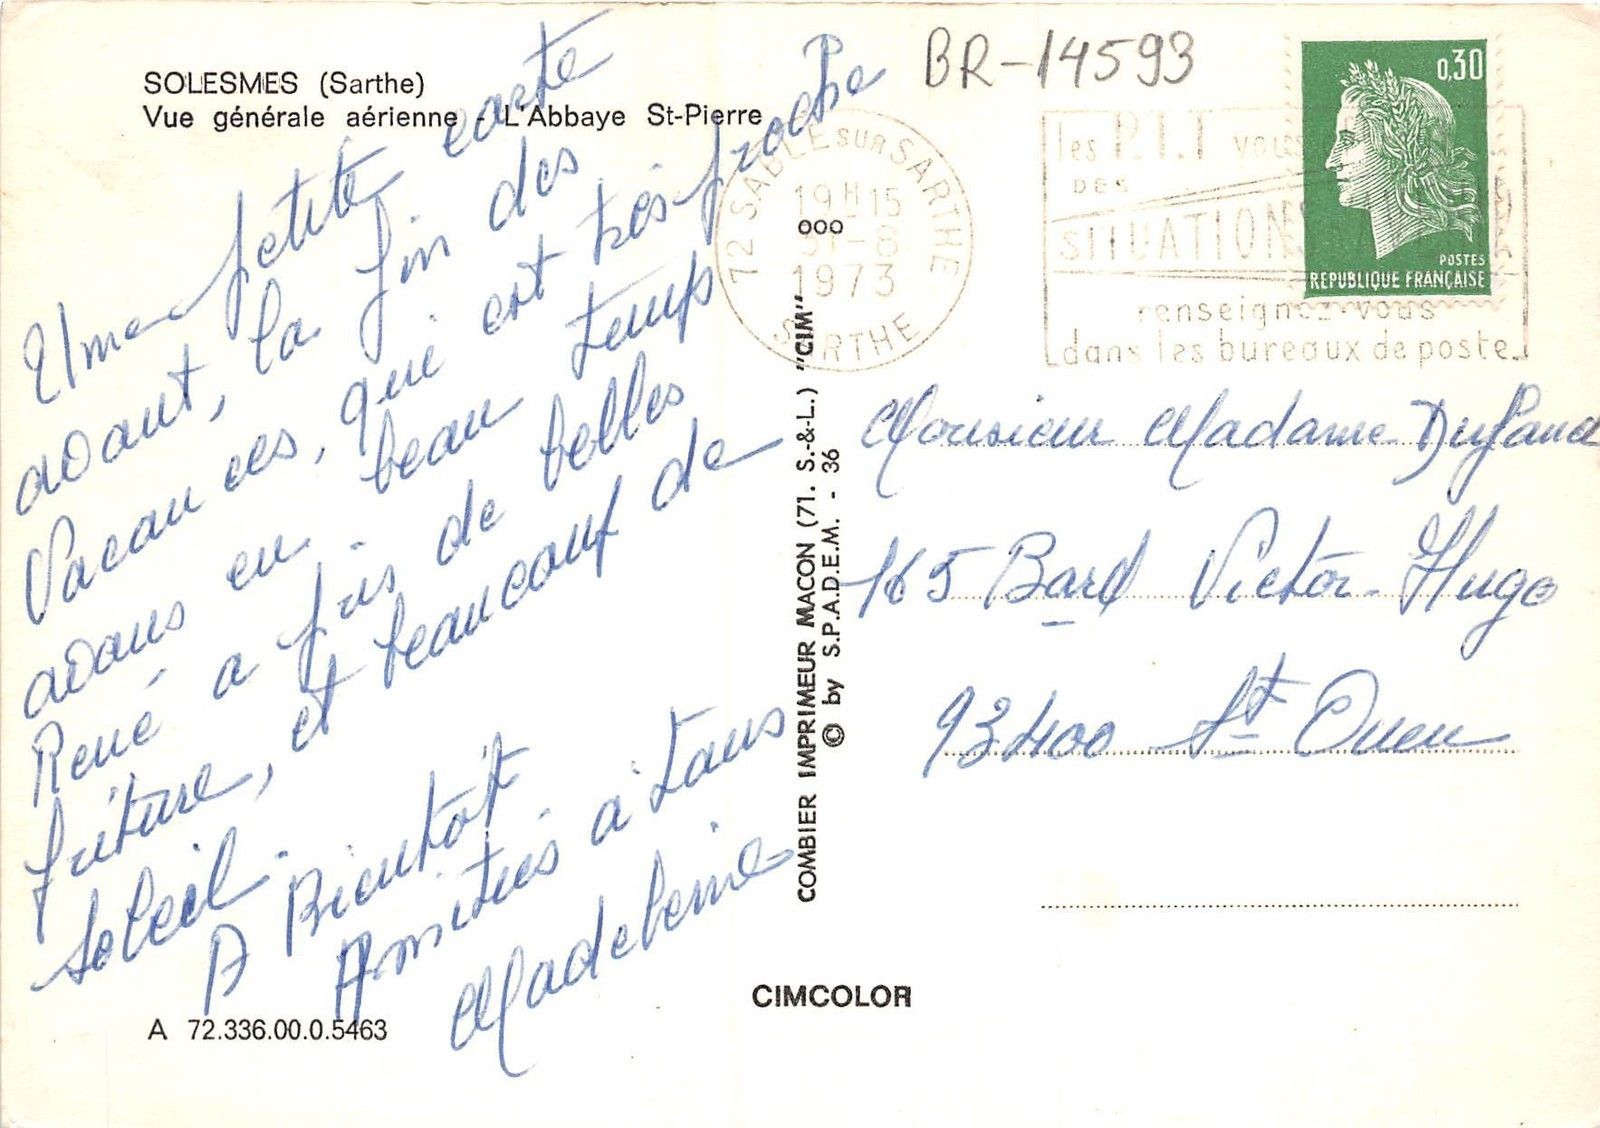 SOLESMES (Sarthe)
Vue générale aérienne - L'Abbaye St-Pierre
Une petite carte
avant, la fin des
Vacances, qui est très proche
avons eu beau temps
René a pris de belles
friture, et beaucoup de
soleil.
A Bientôt
Amitiés à tous
Madeleine
A 72.336.00.0.5463
COMBIER IMPRIMEUR MACON (71. S.-&-L.) "CIM" ooo
© by S.P.A.D.E.M. - 36
CIMCOLOR
BR-14593
72 SABLE SUR SARTHE
19H15
31-8
1973
SARTHE
les P.T.T vous
DES
SITUATIONS
renseignez-vous
dans les bureaux de poste
0,30
POSTES
REPUBLIQUE FRANÇAISE
Monsieur Madame
165 Bard Victor-Hugo
93400 St Ouen